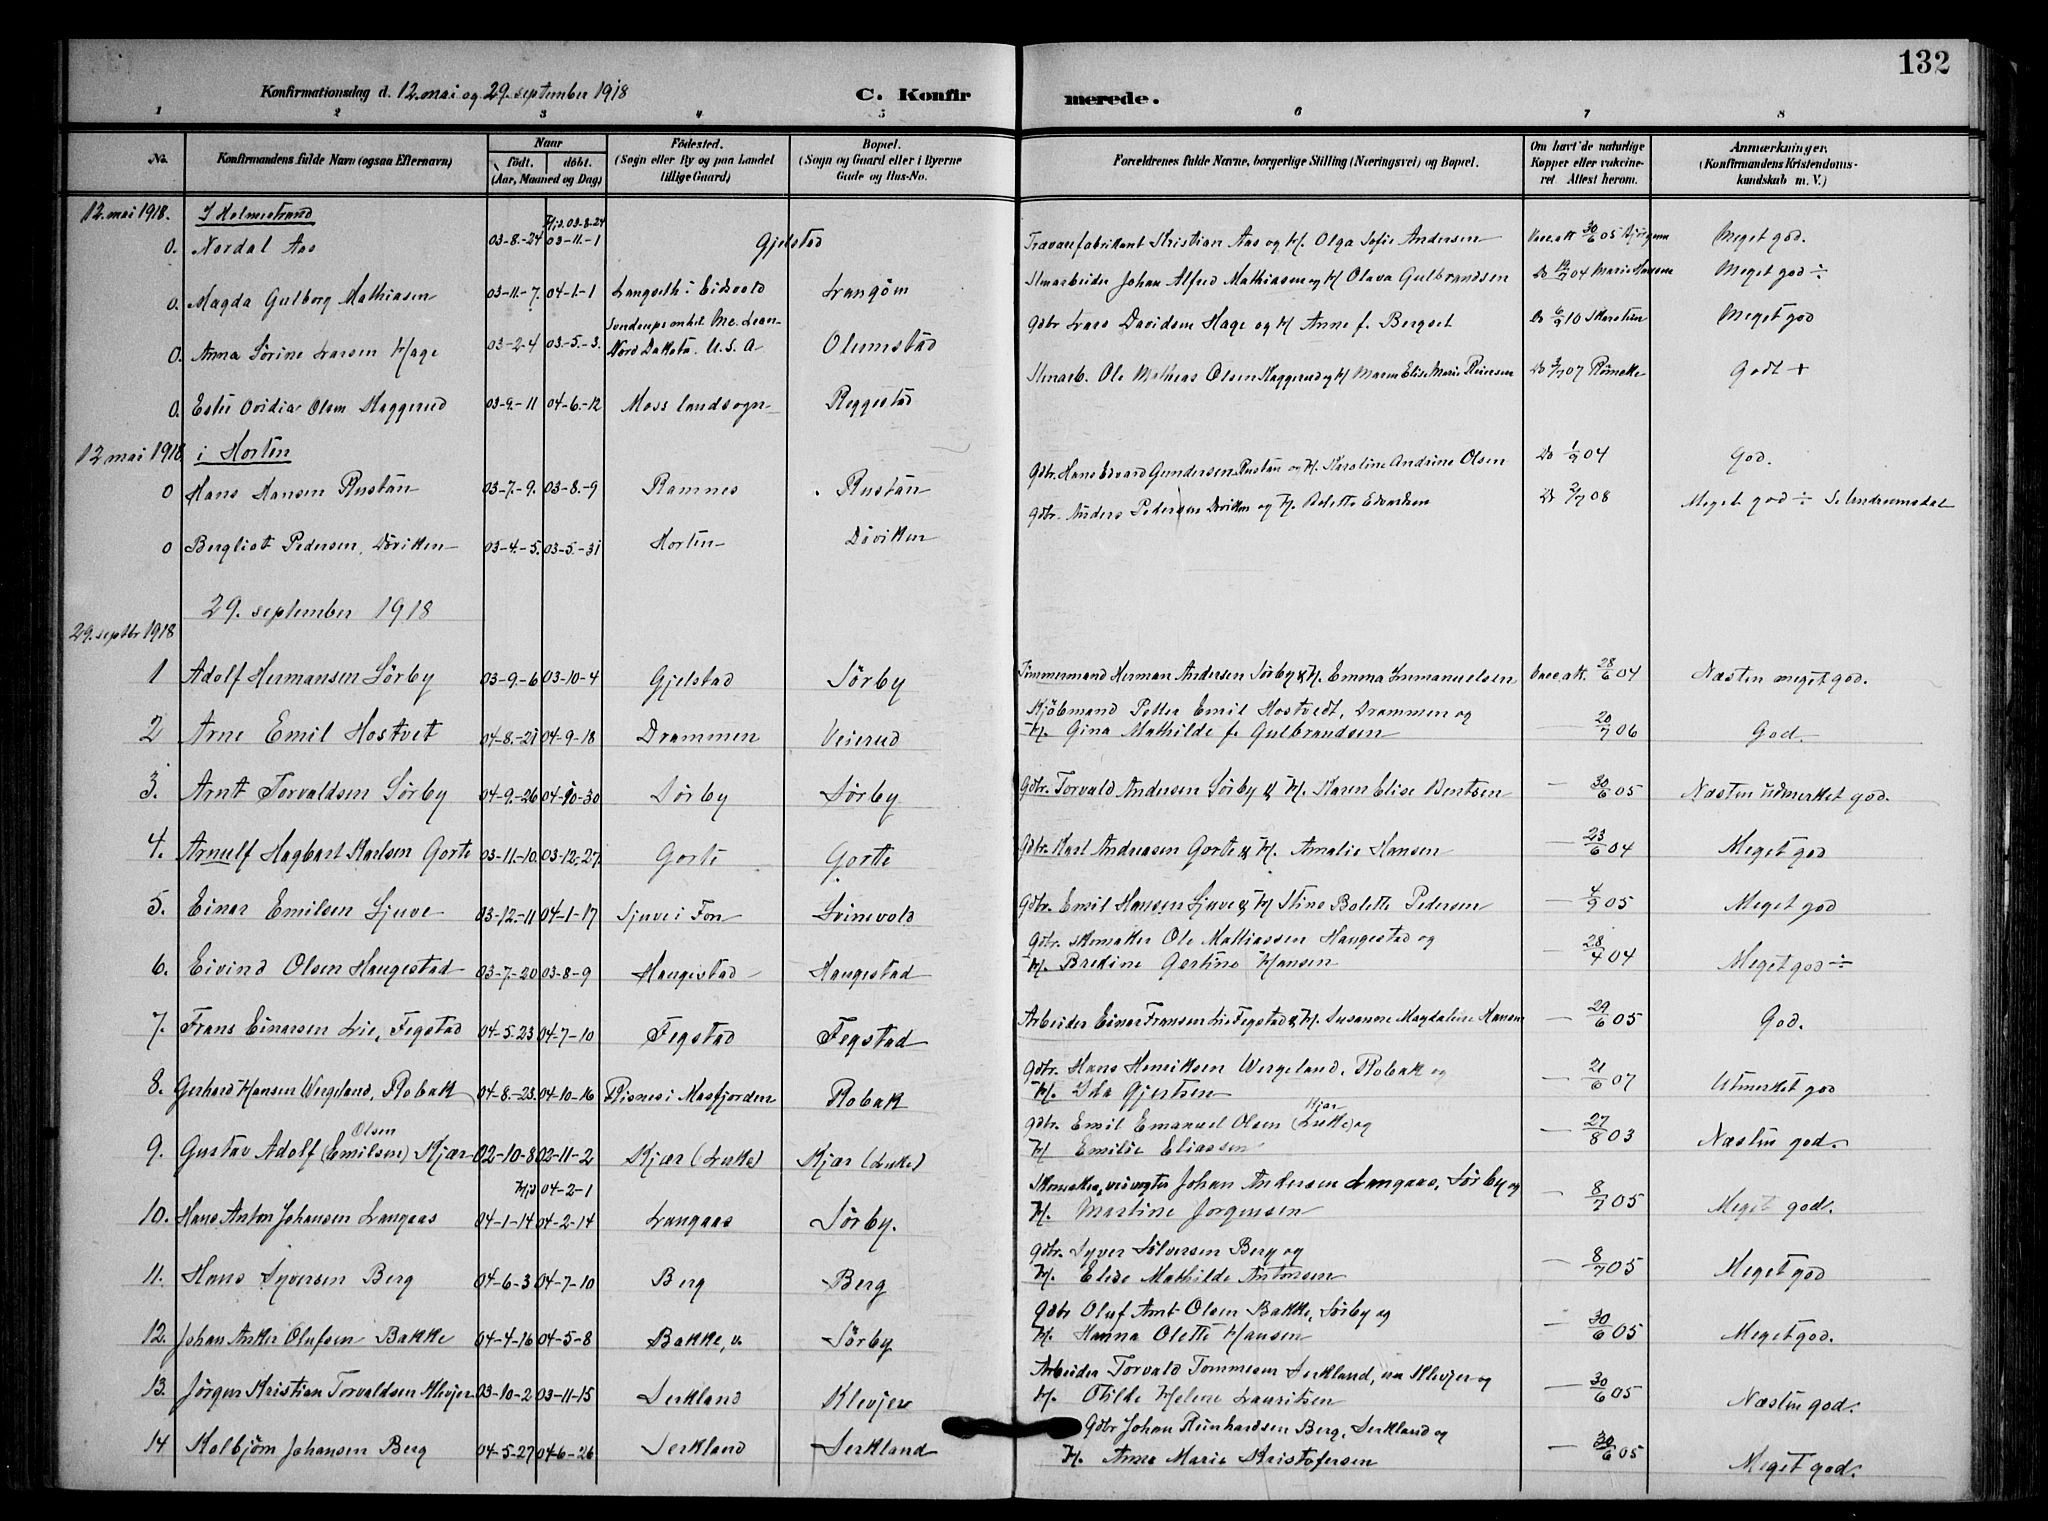 132
Konfirmationsdag d. 12. mai og 29. september 1918 C. Konfirmerede.
1 2 3 4 5 6 7 8
No. Konfirmandens fulde Navn (ogsaa Efternavn) Naar født. døbt. (Aar, Maaned og Dag) Fødested. (Sogn eller By og paa Landet tillige Gaard) Bopæl. (Sogn og Gaard eller i Byerne Gade og Hus-No.) Forældrenes fulde Navne, borgerlige Stilling (Næringsvei) og Bopæl. Om havt de naturlige Kopper eller vakcineret. Attest herom. Anmærkninger. (Konfirmandens Kristendomskundskab m. V.)
12. mai 1918. I Holmestrand
0. Nordal Aas 03-8-24 Hjd. 03-8-24 03-11-1 Gjelstad Trævarefabrikant Kristian Aas og H. Olga Sofie Andersen Vacc. att 30/6 05 Meget god.
0. Magda Gulborg Mathiasen 03-11-7. 04-1-1 Langseth i Eidsvold Langöm Stenarbeider Johan Alfred Mathiasen og H Olava Gulbrandsen Do 04 Marie Hansen Meget god ÷
0. Anna Sörine Larsen Hage 03-2-4 03-5-3. Mc. Lean Nord Dakota. U.S.A Olumstad Gbr Lars Davidsen Hage og H Anne f. Berget Do 6/9 10 Meget god
0. Ester Ovidia Olsen Skaggerud 03-9-11 04-6-12 Moss landsogn Reggestad Stenarb. Ole Mathias Olsen Skaggerud og H Maren Elise Marie Reiersen Do 3/7 07 Godt +
12 mai 1918 i Horten
0 Hans Hansen Rustan 03-7-9. 03-8-9 Ramnes Rustan Gbr. Hans Edvard Gundersen Rustan og H. Karoline Andrine Olsen Do 1/9 04 God.
0 Bergliot Pedersen, Dövikken 03-4-5. 03-5-31 Horten Dövikken Gbr. Anders Pedersen Dövikken og H. Bolette Edvardsen Do 2/7 08 Meget god ÷
29. september 1918
29. septbr 1918
1 Adolf Hermansen Sörby 03-9-6 03-10-4 Gjelstad Sörby Timmermand Herman Andersen Sörby & H. Emma Immanuelsen Vacc. att. 28/6 04 Næsten meget god.
2 Arne Emil Hostvet 04-8-21 04-9-18 Drammen Veierud Kjöbmand Petter Emil Hostvedt, Drammen og
H. Gina Mathilde f. Gulbrandsen — 20/7 06 God.
3. Arnt Torvaldsen Sörby 04-9-26 04-10-30 Sörby Sörby Gbr. Torvald Andersen Sörby & H. Karen Elise Bentsen — 30/6 05 Næsten udmerket god.
4. Arnulf Hagbart Karlsen Gorte 03-11-10. 03-12-27. Gorte Gorte Gbr. Karl Andreasen Gorte & H. Amalie Hansen — 23/6 04 Meget god
5. Einar Emilsen Sjuve 03-12-11 04-1-17 Sjuve i Fon Svinevold Gbr. Emil Hansen Sjuve & H Stine Bolette Pedersen — 4/9 05 Meget god
6. Eivind Olsen Haugestad 03-7-20 03-8-9 Haugestad Haugestad Gbr. skomaker Ole Mathiassen Haugestad og
H. Bredine Gestine Hansen — 28/4 04 Meget god ÷
7. Frans Einarsen Lie, Fegstad 04-5-23 04-7-10 Fegstad Fegstad Arbeider Einar Fransen Lie Fegstad & H. Susanne Magdalene Hansen — 29/6 05 God.
8. Gerhard Hansen Wergeland, Robak 04-8-23. 04-10-16 Risnes i Masfjorden Robak Gbr. Hans Henriksen Wergeland, Robak og
H. Ida Gjertsen — 21/6 07 Utmerket god
9. Gustav Adolf (Emilsen) Olsen Kjær 02-10-8 02-11-2 Kjær (Lukke) Kjær (Lukke) Gbr. Emil Emanuel Olsen Kjær (Lukke) og
H Emilie Eliassen — 27/8 03 Næsten god.
10. Hans Anton Johansen Langaas 04-1-14 Hjd 04-2-1 04-2-14 Langaas Sörby. Skomaker, veivogter Johan Andersen Langaas, Sörby og
H. Martine Jorgensen — 8/7 05 Meget god.
11. Hans Syversen Berg 04-6-3 04-7-10 Berg Berg Gbr. Syver Sölversen Berg og
H. Elise Mathilde Antonsen — 8/7 05 Meget god
12. Johan Anker Olufsen Bakke 04-4-16 04-5-8 Bakke, v. Sörby Gbr Oluf Arnt Olsen Bakke, Sörby og
H. Hanna Olette Hansen — 30/6 05 Meget god.
13. Jörgen Kristian Torvaldsen Klevjer 03-10-2 03-11-15 Serkland Klevjer Arbeider Torvald Tommesen Serkland, nu Klevjer og
H. Otilde Helene Lauritsen — 30/6 05 Næsten god.
14 Kolbjörn Johansen Berg 04-5-27 04-6-26 Serkland Serkland Gbr Johan Reinhardsen Berg, Serkland og
H. Anne Marie Kristofersen — 30/6 05 Meget god.